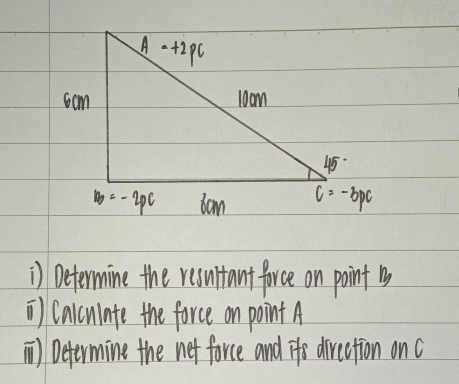 A = +2pc
6cm
10cm
45°
B = -2pc
8cm
C = -3pc
i) Determine the resultant force on point B
ii) Calculate the force on point A
iii) Determine the net force and its direction on C